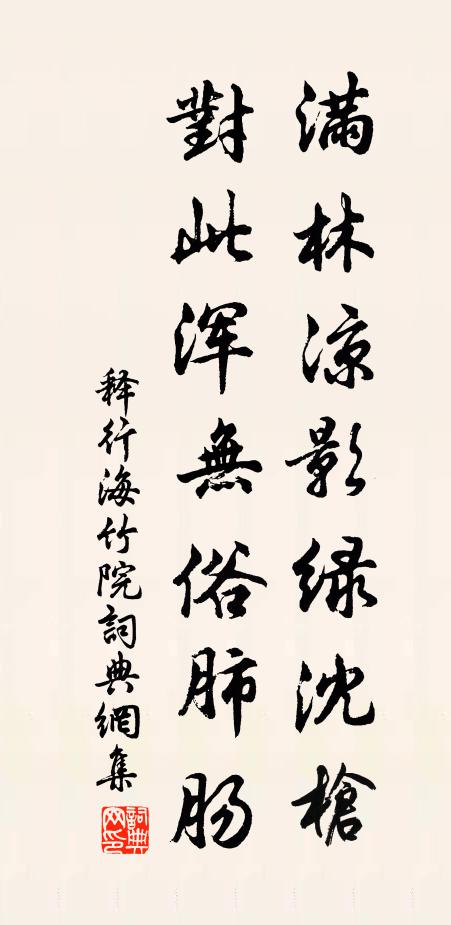 滿林涼影绿沈槍
對此浑無俗肺肠
释行海竹院詞典網集
詞典网印